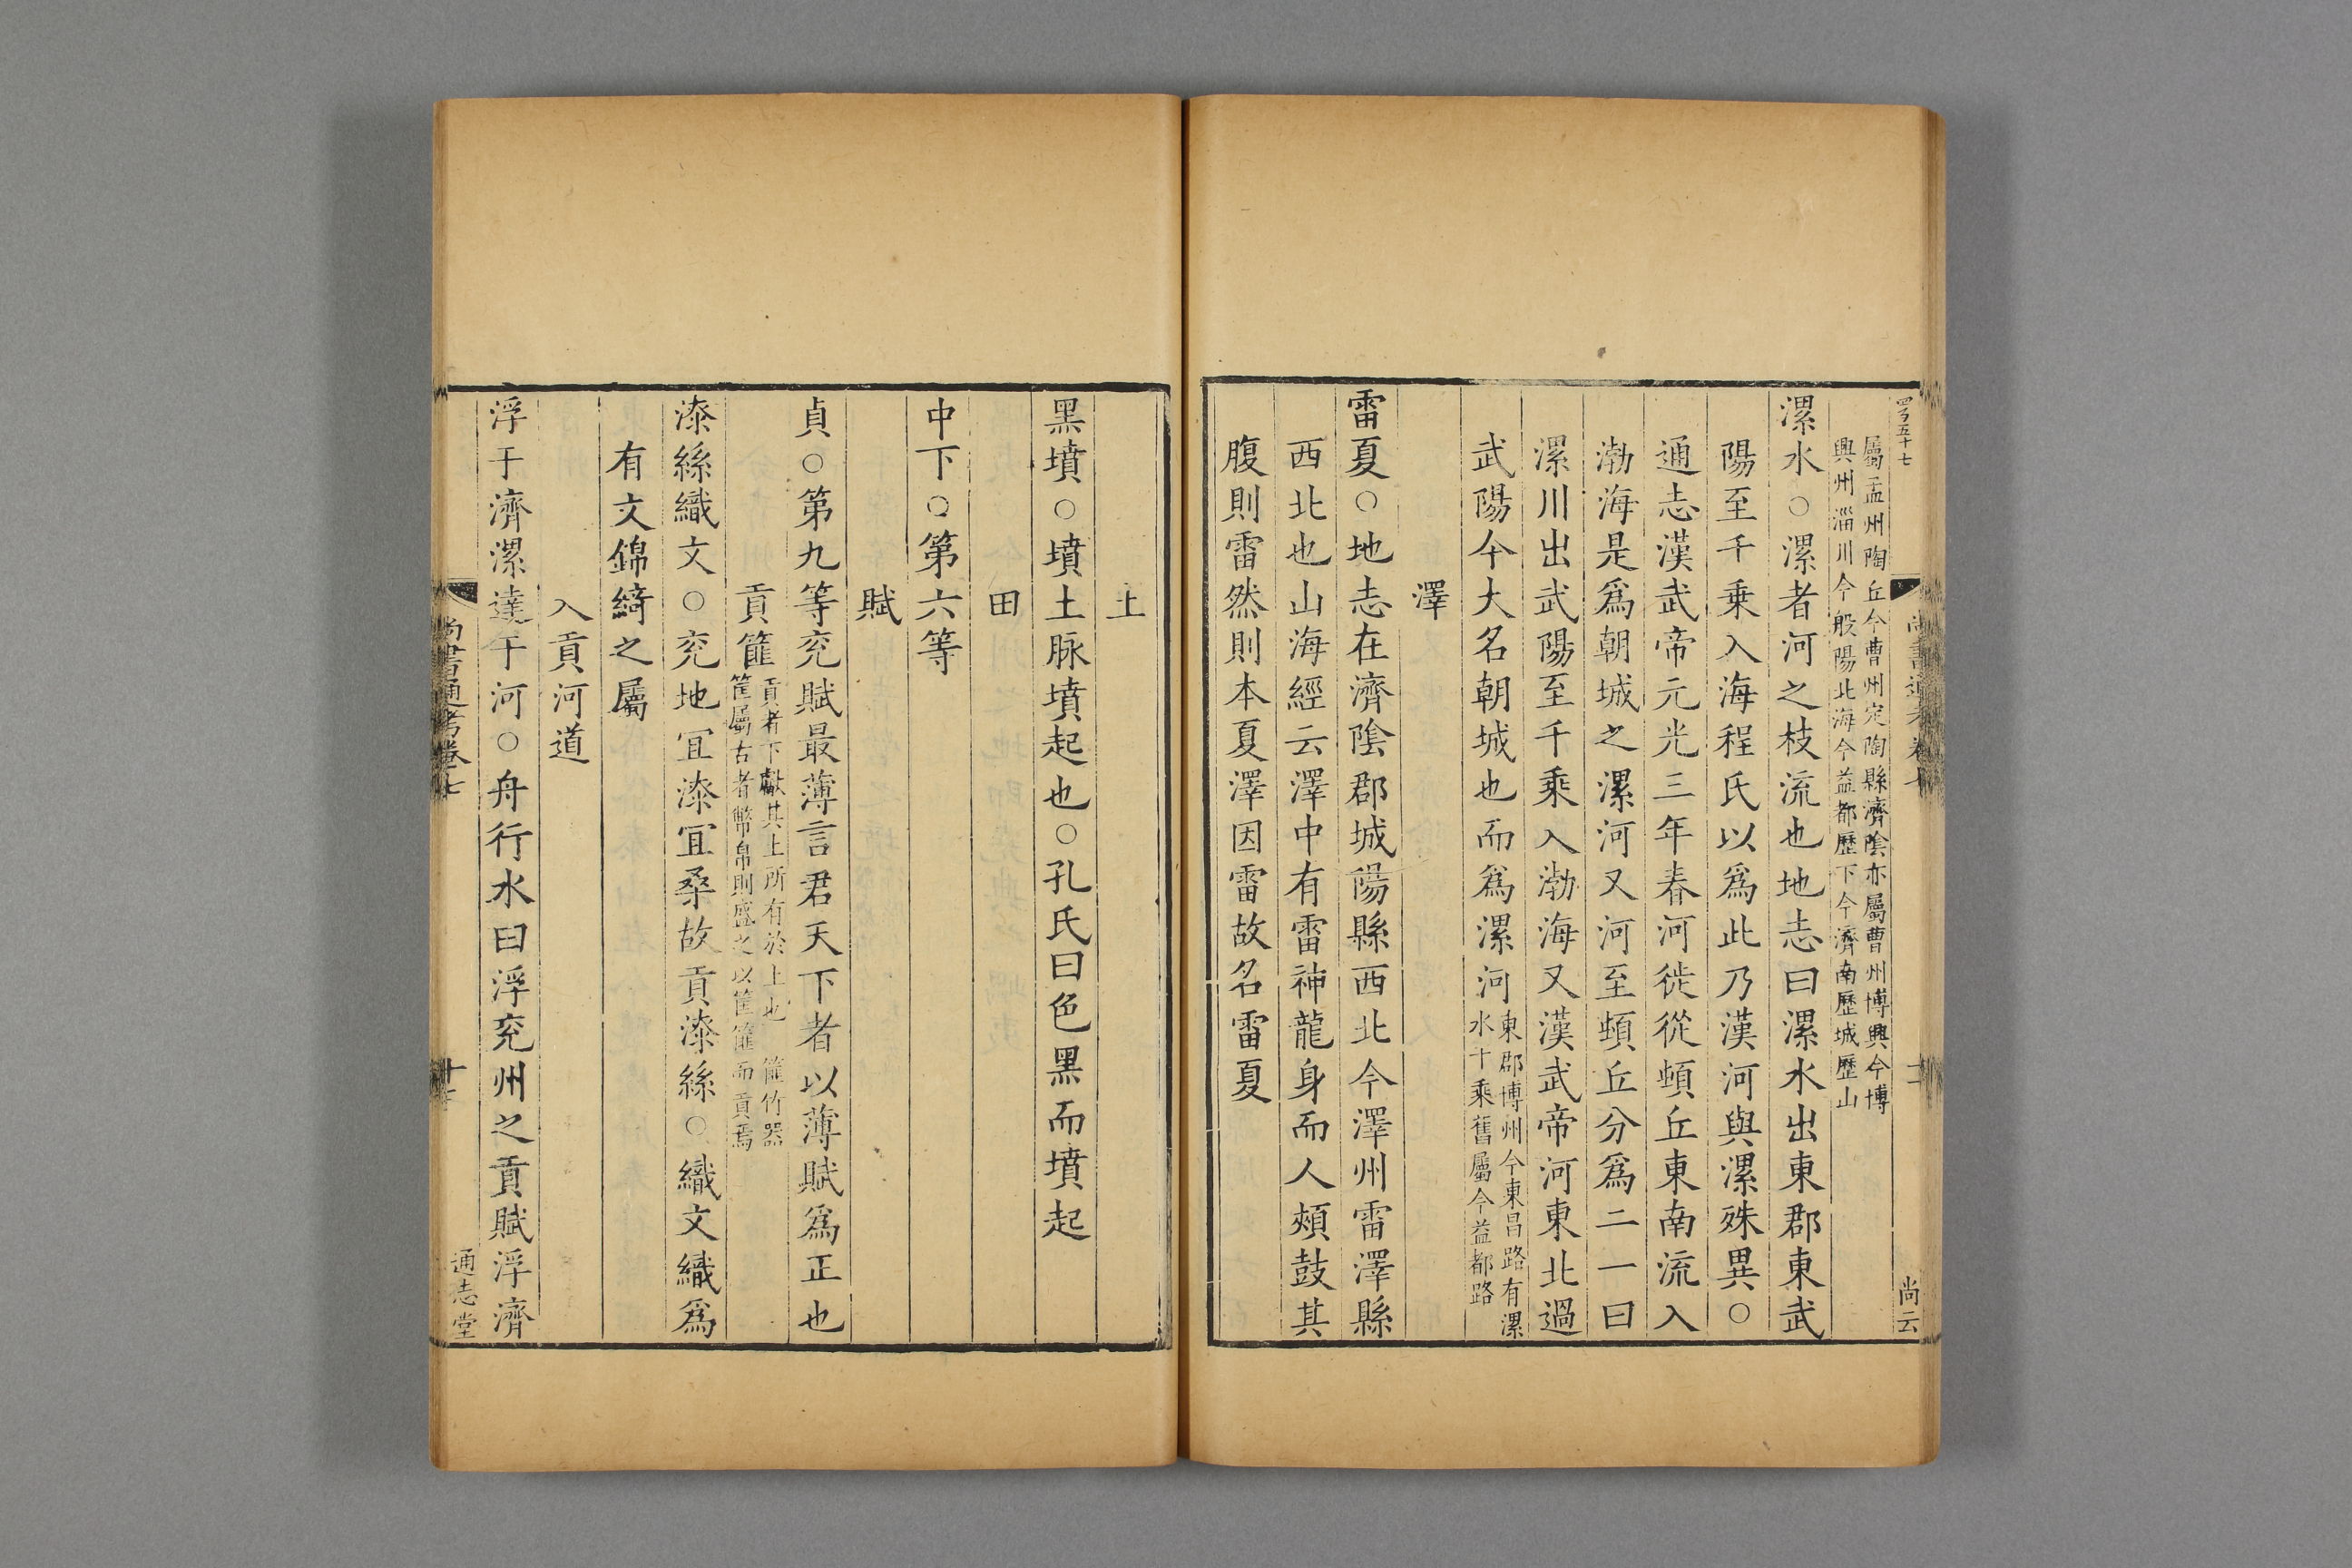 屬孟州陶丘今曹州定陶縣濟陰亦屬曹州博興今博
興州淄川今般陽北海今益都歷下今濟南歷城歷山
漯水○漯者河之枝流也地志曰漯水出東郡東武
陽至千乗入海程氏以爲此乃漢河與漯殊異○
通志漢武帝元光三年春河徙從頓丘東南流入
渤海是爲朝城之漯河又河至頓丘分爲二一曰
漯川出武陽至千乗入渤海又漢武帝河東北過
武陽今大名朝城也而爲漯河
東郡博州今東昌路有漯
水千乘舊屬今益都路
澤
雷夏○地志在濟陰郡城陽縣西北今澤州雷澤縣
西北也山海經云澤中有雷神龍身而人頰鼓其
腹則雷然則本夏澤因雷故名雷夏
尚云
土
黑墳○墳土脉墳起也○孔氏曰色黑而墳起
田
中下○第六等
賦
貞○第九等兖賦最薄言君天下者以薄賦爲正也
貢篚
貢者下獻其上所有於上也 篚竹器
筐屬古者幣帛則盛之以筐篚而貢焉
漆絲織文○兖地宜漆宜桑故貢漆絲○織文織爲
有文錦綺之屬
入貢河道
浮于濟漯達于河○舟行水曰浮兖州之貢賦浮濟
尚書通考卷七
通志堂